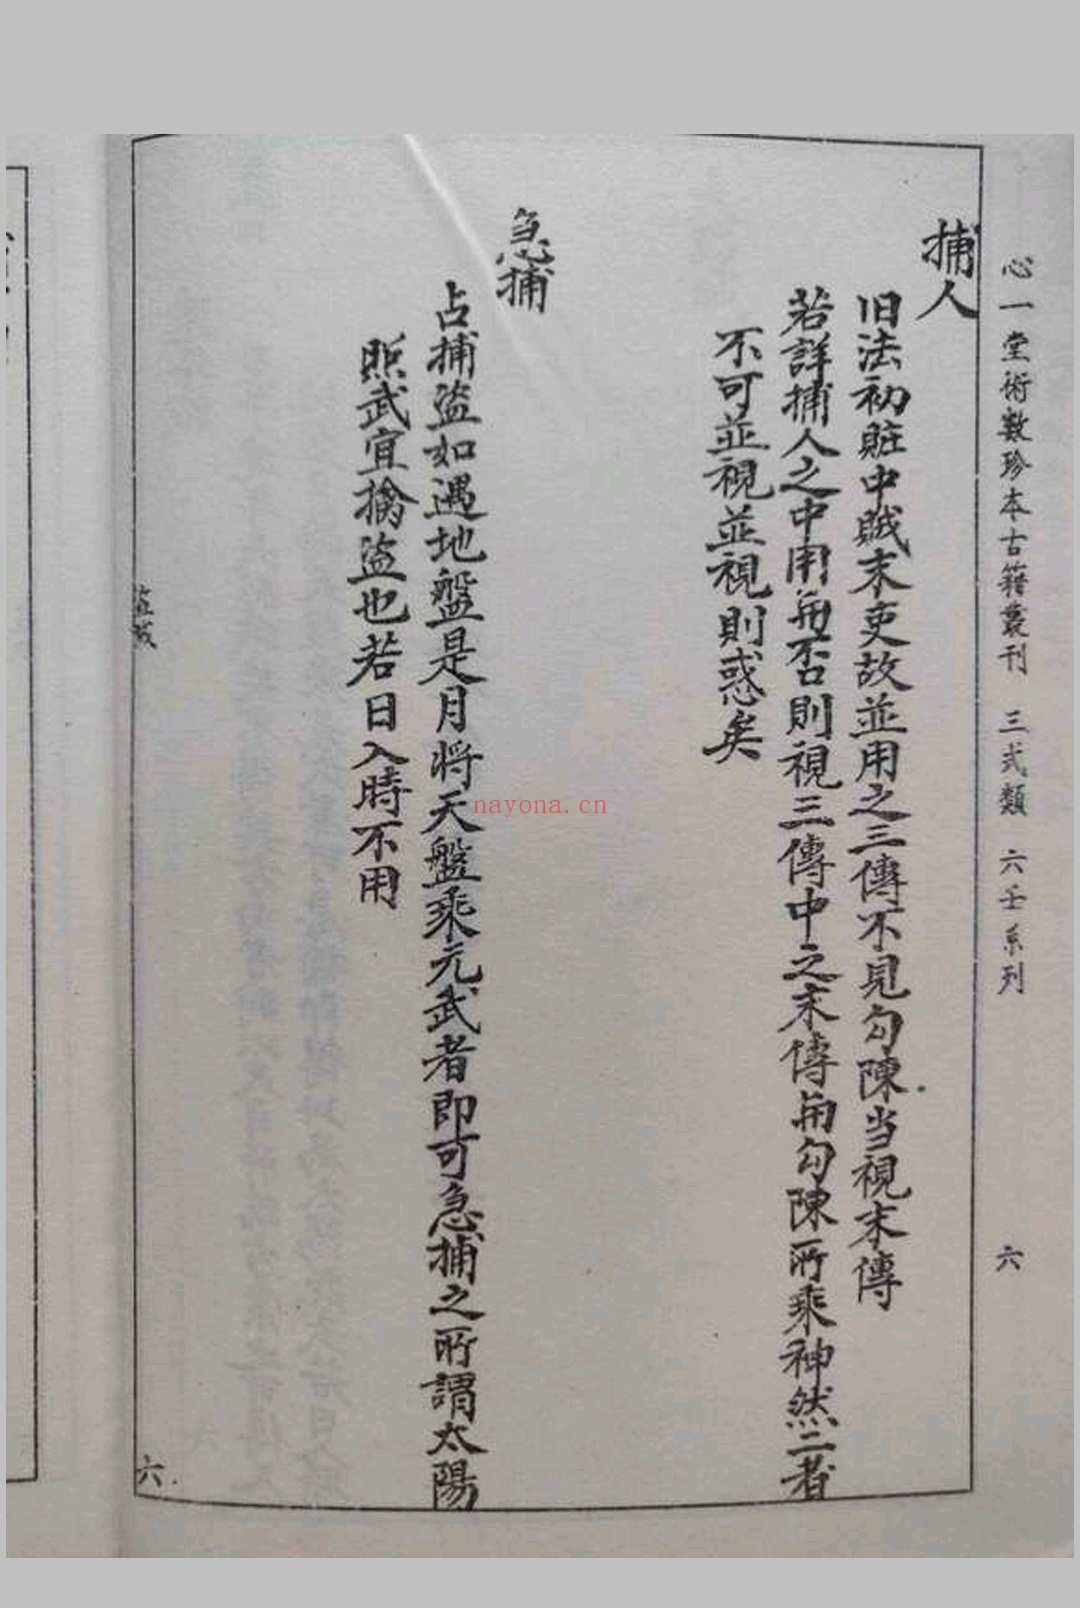 心一堂術數珍本古籍叢刊 三式類 六壬系列 六
捕人
旧法初賍中賊末吏故並用之三傳不見勾陳当視末傳
若詳捕人之中用与否則視三傳中之末傳与勾陳所乘神然二者
不可並視並視則惑矣
急捕
占捕盜如遇地盤是月將天盤乘元武者即可急捕之所謂太陽
照武宜擒盜也若日入時不用
盜
六
nayona.cn